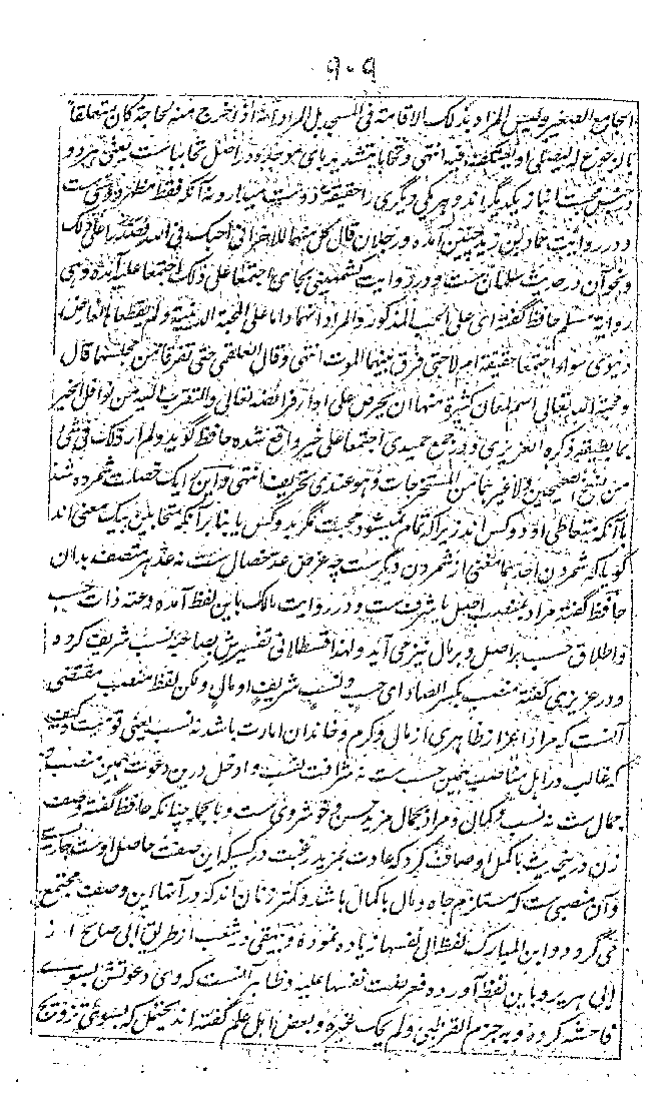 ۹۰۹
الجامع الصغیر ولیس المراد بذلک الاقامة فی المسجد بل المراد انه اذا خرج منه لحاجة کان متعلقا
بالرجوع الیه لیصلی او لیعتکف فیه انتهی و تحابا بتشدید بای موحده در اصل تحاببا است یعنی هر دو
جنس محبت انباز یکدیگراند و هر یکی دیگری را حقیقة دوست میدارد نه آنکه فقط مظهر دوستی ست
و در روایت حماد بن زید چنین آمده و رجلان قال کل منهما للآخر انی احبک فی الله فصدرا علی ذلک
و نحو آن در حدیث سلمان ست و در روایت کشمیهنی بجای اجتمعا علی ذلک اجتمعا علیه آمده وهی
روایة مسلم حافظ گفته ای علی الحب المذکور والمراد انهما داما علی المحبة الدینیة ولم یقطعاها لعارض
دنیوی سواء اجتمعا حقیقة ام لا حتی فرق بینهما الموت انتهی وقال العلقمی حتی تفرقا من مجلسهما قال
و محبة الله تعالی اسم لمعان کثیرة منها ان یحرص علی اداء فرائضه تعالی والتقرب الیه من نوافل الخیر
بما یطیقه ذکره العزیزی و در جمع حمیدی اجتمعا علی خیر واقع شده حافظ گوید ولم ار ذلک فی شی
من نسخ الصحیحین ولا غیرهما من المستخرجات وهو عندی تحریف انتهی و این یک خصلت شمرده شد
با آنکه متعاطی او دو کس اند زیرا که تمام نمیشود محبت مگر بدو کس یا بنا بر آنکه متحابین بیک معنی اند
گویا که شمردن احدهما مغنی از شمردن دیگر ست چه غرض عد خصال ست نه عد هر متصف بدان
حافظ گفته مراد بمنصب اصل یا شرف ست و در روایت مالک باین لفظ آمده دعته ذات حسب
و اطلاق حسب بر اصل و بر مال نیز می آید و لهذا قسطلانی تفسیرش بصاحبة نسب شریف کرده
و در عزیزی گفته منصب بکسر الصاد ای حسب و نسب شریف او مال ولکن لفظ منصب مقتضی
آنست که مراد اعزاز ظاهری از مالی و کرم و خاندان امارت باشد نه نسب یعنی قومیت و کیف
که غالب در اهل مناصب همین حسب ست نه شرافت نسب و ادخل درین دعوت همین منصب و
جمال ست نه نسب و کمال و مراد بجمال مزید حسن و خوشروی ست و بالجمله چنانکه حافظ گفته وصف
زن درینحدیث باکمل اوصاف کرد که عادت بمزید رغبت در کسیکه این صفت حاصل اوست جاریست
و آن منصبی ست که مستلزم جاه و مال با کمال باشد و کمتر زنان اند که در آنها این وصف مجتمع
می گردد و ابن المبارک لفظ الی نفسها زیاده نموده و بیهقی در شعب از طریق ابی صالح از
ابی هریره باین لفظ آورده فعرضت نفسها علیه و ظاهر آنست که وی دعوتش بسوی
فاحشه کرده و به جزم القرطبی ولم یحک غیره و بعض اهل علم گفته اند یحتمل که بسوی تزویج